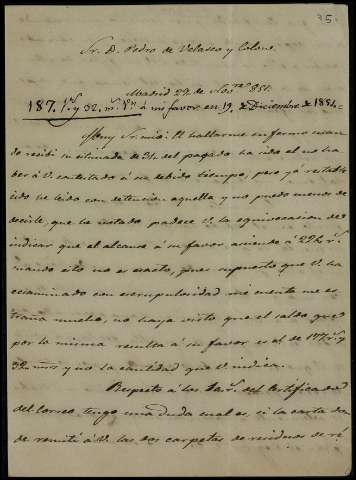 35.
Sr. D. Pedro de Velasco y Colone.
Madrid 27 de Nov.re 851.
187. r.s y 32. m.s V.n á mi favor en 19. de Diciembre de 1851.
Muy Sr. mio: El hallarme enfermo cuan
do recibi su estimada de 31. del pasado ha sido el no ha
ber á V. contestado á su debido tiempo, pero ya restable
cido he leido con detencion aquella y no puedo menos de
decirle, que lo notado padece V. la equivocacion de
indicar que el alcance á su favor, asciende á 224 r.s
cuando esto no es exacto, pues supuesto que V. ha
ecsaminado con escrupulosidad mi cuenta me es
traña mucho, no haya visto que el saldo que
por la misma resulta á su favor es el de 187 r.s y
32 mrs y no la cantidad que V. indica.
Respecto á los 2 r.s del Certificado
del correo, tengo una duda cual es, si la carta don
de remití á V. las dos carpetas de residuos de ré